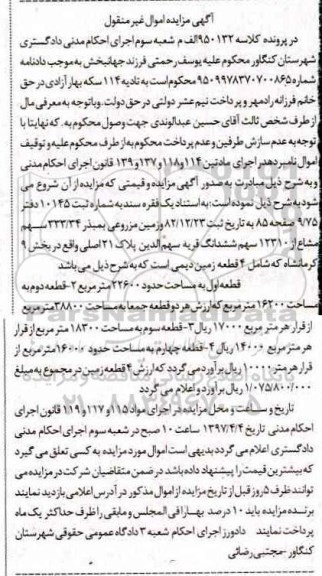 آگهی مزایده اموال غیر منقول
در پرونده کلاسه ۹۵۰۱۳۲ الف م شعبه سوم اجرای احکام مدنی دادگستری
شهرستان کنگاور محکوم علیه یوسف رحمتی فرزند جهانبخش به موجب دادنامه
شماره ۹۵۰۹۹۷۸۳۷۰۷۰۰۸۶۵ محکوم است به تادیه ۱۱۴ سکه بهار آزادی در حق
خانم فرزانه رادمهر و پرداخت نیم عشر دولتی در حق دولت. وباتوجه به معرفی مال
از طرف شخص ثالث آقای حسین عبدالوندی جهت وصول محکوم به. که نهایتا با
توجه به عدم سازش طرفین وعدم پرداخت محکوم به از طرف محکوم علیه و توقیف
اموال نامبرده اجرای مادتین ۱۱۴ و۱۱۸ و۱۳۷ و ۱۳۹ قانون اجرای احکام مدنی
و به شرح ذیل مبادرت به صدور آگهی مزایده و قیمتی که مزایده از آن شروع می
شود به شرح ذیل نموده است: به استناد یک فقره سند به شماره ثبت ۱۰۱۴۵ دفتر
۹/۷۵ صفحه ۸۵ به تاریخ ثبت ۸۲/۱۲/۲۳ وزمین مزروعی بمبذر ۳۳۳/۳۴ سهم
مشاع از ۱۲۳۱۰ سهم ششدانگ قریه سهم الدین پلاک ۲۱ اصلی واقع در بخش ۹
کرمانشاه که شامل ۴ قطعه زمین دیمی است که به شرح ذیل می باشد
قطعه اول به مساحت حدود ۲۲۶۰۰ متر مربع ۲- قطعه دوم به
مساحت ۱۶۲۰۰ متر مربع که ارزش هر دو قطعه جمعا به مساحت ۳۸۸۰۰ متر مربع
از قرار هر متر مربع ۱۷۰۰۰ ریال ۳-قطعه سوم به مساحت ۱۸۳۰۰ متر مربع از قرار
هر متر مربع ۱۴۰۰۰ ریال ۴- قطعه چهارم به مساحت حدود ۱۶۰۰۰ متر مربع از
قرار هر متر ۱۰۰۰۰ ریال برآورد می گردد که ارزش ۴ قطعه زمین در مجموع به مبلغ
۱/۰۷۵/۸۰۰/۰۰۰ ریال برآورد و اعلام می گردد
تاریخ و ساعت و محل مزایده در اجرای مواد ۱۱۵ و ۱۱۷ و ۱۱۹ قانون اجرای
احکام مدنی تاریخ ۱۳۹۷/۴/۴ ساعت ۱۰ صبح در شعبه سوم اجرای احکام مدنی
دادگستری اعلام می گردد بدیهی است اموال مورد مزایده به کسی تعلق می گیرد
که بیشترین قیمت را پیشنهاد داده باشد در ضمن متقاضیان شرکت در مزایده می
توانند ظرف ۵ روز قبل از تاریخ مزایده از اموال مذکور در آدرس اعلامی بازدید نمایند
برنده مزایده باید ۱۰ درصد بها را فی المجلس و مابقی را ظرف حداکثر یک ماه
پرداخت نمایند دادورز اجرای احکام شعبه ۳ دادگاه عمومی حقوقی شهرستان
کنگاور -مجتبی رضائی